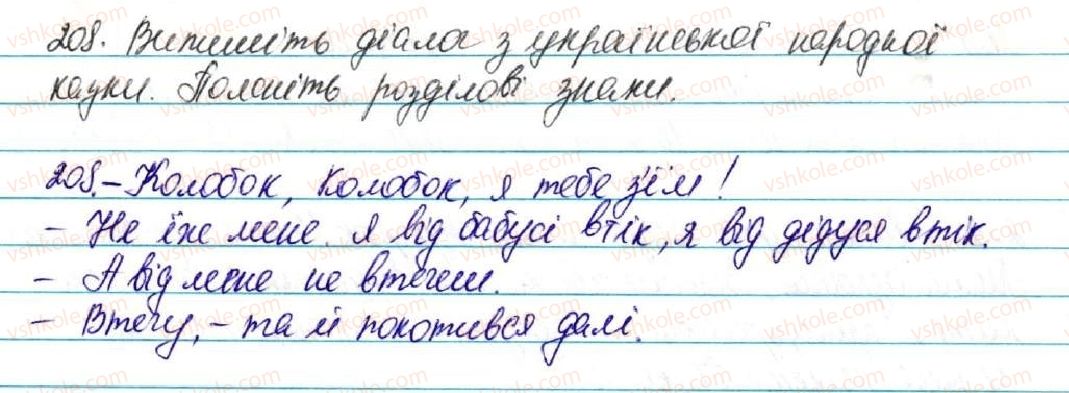 208. Випишіть діалог з української народної
казки. Поясніть розділові знаки.
208. – Колобок, колобок, я тебе з'їм!
– Не їж мене. Я від бабусі втік, я від дідуся втік.
– А від мене не втечеш.
– Втечу, – та й покотився далі.